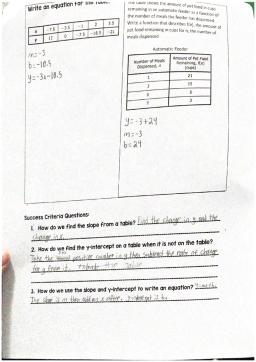 Write an equation for
x -7.5 -3.5 -1 2 3.5
y 12 0 -7.5 -16.5 -21
m=-3
b=-10.5
y=-3x-10.5
remaining in an automatic feeder as a function of
the number of meals the feeder has dispensed.
Write a function that describes f(x), the amount of
pet food remaining in cups for n, the number of
meals dispensed.
Automatic Feeder
Number of Meals Dispensed, n
Amount of Pet Food Remaining, f(x) (cups)
1 21
3 15
6 6
7 3
y=-3+24
m=-3
b=24
Success Criteria Questions:
1. How do we find the slope from a table? Find the change in y and the
change in x.
2. How do we find the y-intercept on a table when it is not on the table?
Take the positive number in y then subtract the rate of change
for y from it.
3. How do we use the slope and y-intercept to write an equation?
The slope is m then add an x after, y-intercept is b.